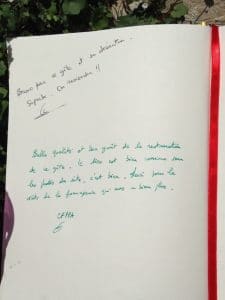 Bravo pour ce gîte et sa décoration
Superbe. On reviendra !!
Belle qualité et bon goût de la restauration
de ce gîte. Le lieu est bien comme sur
les photos du site, c'est bien. Merci pour la
visite de la fromagerie qui nous a bien plu.